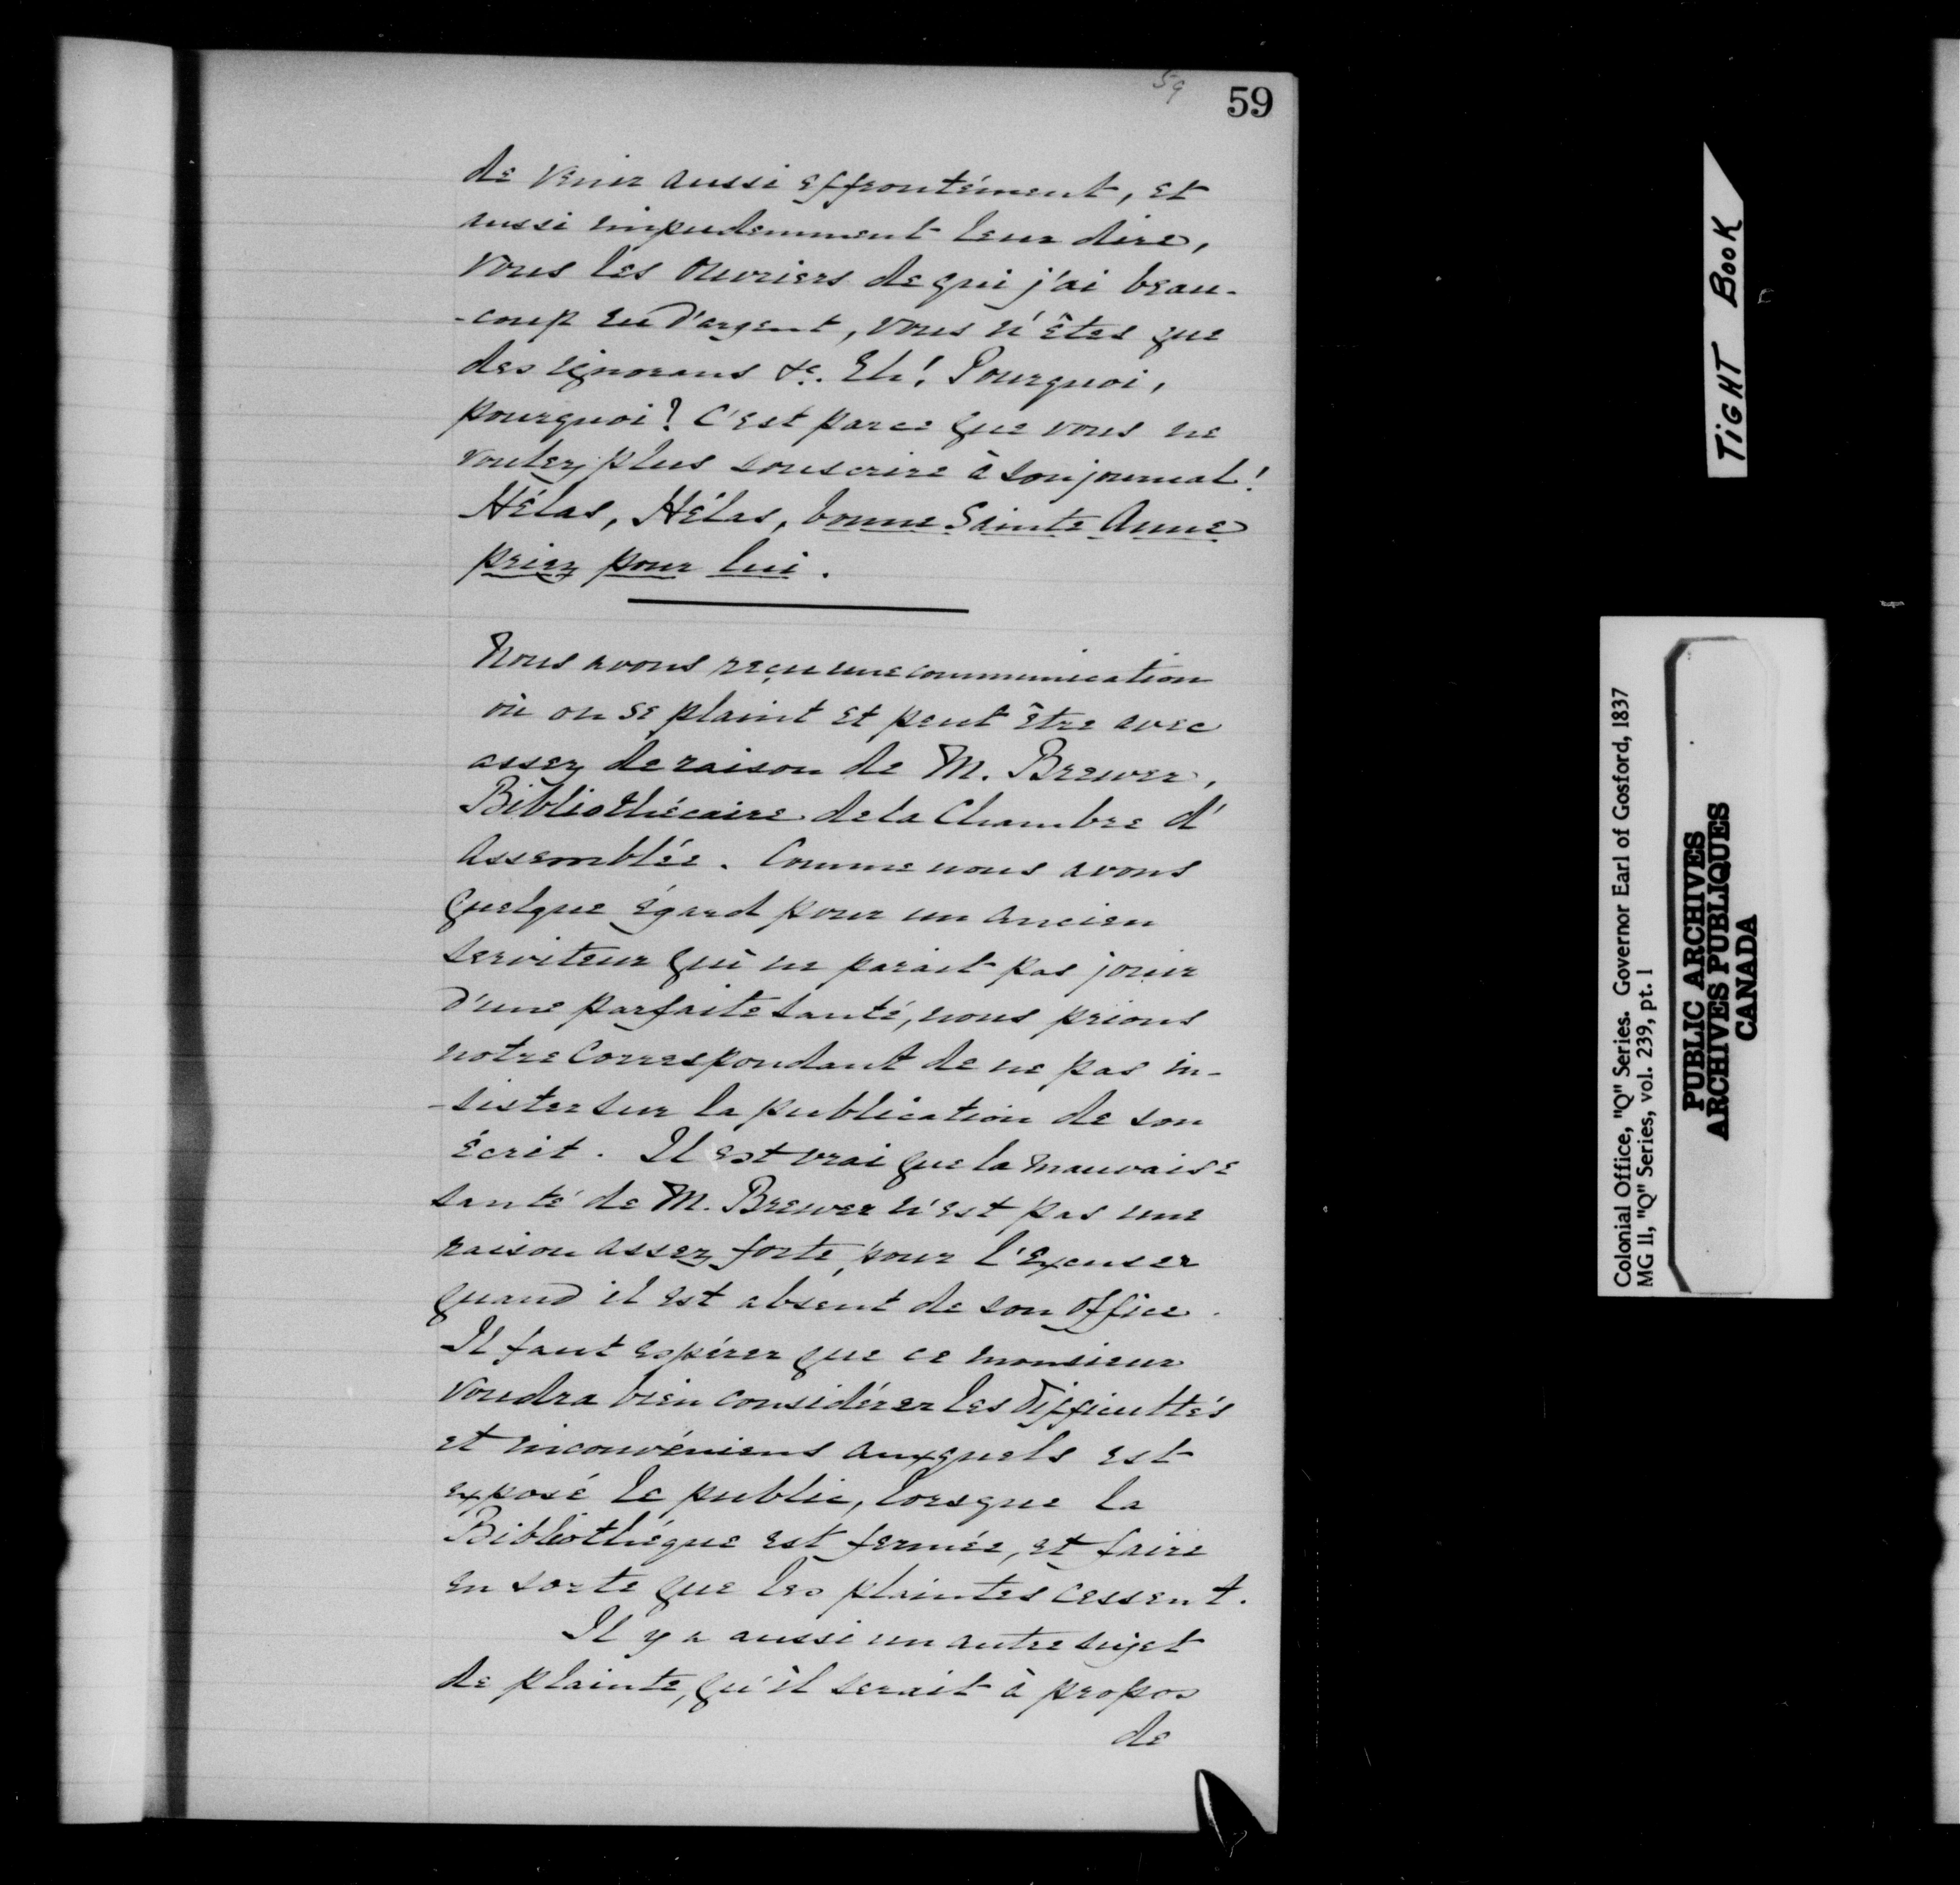 59
59
de venir aussi effrontément, et
aussi impudemment leur dire,
vous les ouvriers de qui j'ai beau-
-coup eu d'argent, vous n'êtes que
des ignorans &c. Eh! Pourquoi,
pourquoi? C'est parce que vous ne
voulez plus souscrire à son journal!
Hélas, Hélas, bonne Sainte Anne
priez pour lui.
Nous avons reçu une communication
où on se plaint et peut être avec
assez de raison de M. Brewer,
Bibliothécaire de la Chambre d'
Assemblée. Comme nous avons
quelque égard pour un ancien
serviteur qui ne parait pas jouir
d'une parfaite santé, nous prions
notre Correspondant de ne pas in-
-sister sur la publication de son
écrit. Il est vrai que la mauvaise
santé de M. Brewer n'est pas une
raison assez forte, pour l'excuser
quand il est absent de son office.
Il faut espérer que ce monsieur
voudra bien considérer les difficultés
et inconvéniens auxquels est
exposé le public, lorsque la
Bibliothèque est fermée, et faire
en sorte que les plaintes cessent.
Il y a aussi un autre sujet
de plainte, qu'il serait à propos
de
TIGHT BOOK
Colonial Office, "Q" Series. Governor Earl of Gosford, 1837
MG 11, "Q" Series, vol. 239, pt. 1
PUBLIC ARCHIVES
ARCHIVES PUBLIQUES
CANADA